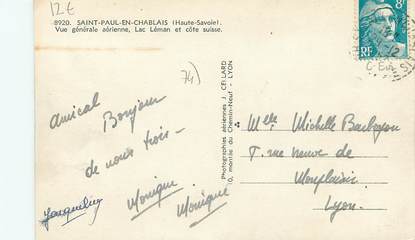 12 €
8920. SAINT-PAUL-EN-CHABLAIS (Haute-Savoie).
Vue générale aérienne, Lac Léman et côte suisse.
74)
Amical
Bonjour
de nous trois —
Monique
Monique
Jacqueline
Photographies aériennes J. CELLARD
0, montée du Chemin-Neuf - LYON
8F
RF
Melle Michelle
7. rue neuve de
Monplaisir
Lyon.